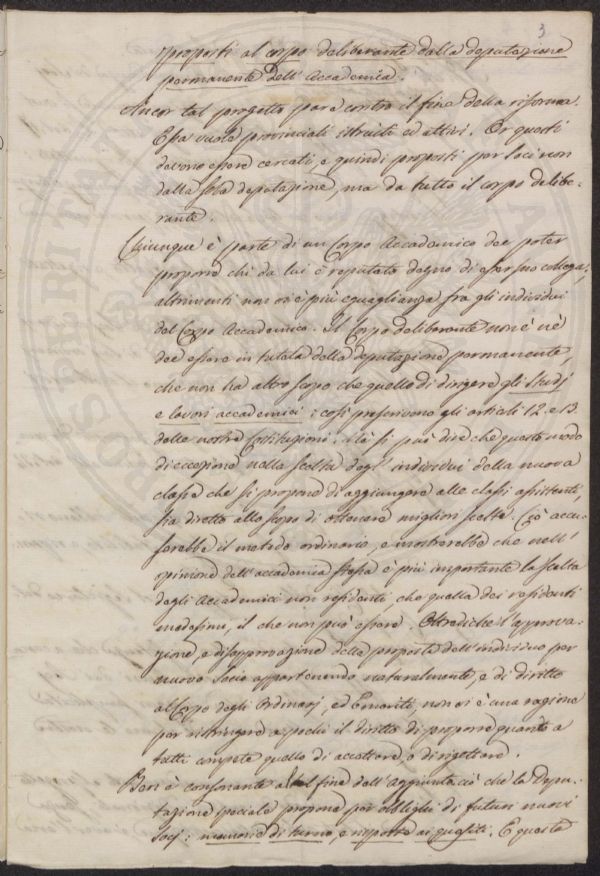 3
proposti al corpo deliberante dalla deputazione
permanente dell'Accademia.
Ancor tal progetto pare contro il fine della riforma.
Essa vuole provinciali istruiti ed attivi. Or questi
devono essere cercati, e quindi proposti per soci non
dalla sola deputazione, ma da tutto il corpo delibe-
rante.
Chiunque è parte di un Corpo Accademico dee poter
proporre chi da lui è reputato degno di esser suo collega,
altrimenti non vi è più eguaglianza fra gli individui
del Corpo Accademico. Il Corpo deliberante non è nè
dee essere in tutela della deputazione permanente,
che non ha altro scopo che quello di dirigere gli studj
e lavori accademici: così prescrivono gli articoli 12. e 13.
delle nostre Costituzioni. Nè si può dire che questo modo
di eccezione nella scelta degl' individui della nuova
classe che si propone di aggiungere alle classi esistenti,
sia diretto allo scopo di ottenere migliori scelte. Ciò accu-
serebbe il metodo ordinario, e mostrerebbe che nell'
opinione dell'accademia stessa è più importante la scelta
degli Accademici non residenti, che quella dei residenti
medesimi, il che non può essere. Oltrediché l'approva-
zione, e disapprovazione della proposta dell'individuo per
nuovo socio appartenendo naturalmente, e di diritto
al Corpo degli Ordinarj, ed Emeriti, non vi è una ragione
per ristringere a pochi il diritto di proporre quanto a
tutti compete quello di accettare, o di rigettare.
Ben è consonante al fine dell'Aggiunta ciò che la Depu-
tazione speciale propone per obblighi di futuri nuovi
socj: memorie di turno, e risposte ai quesiti. E queste